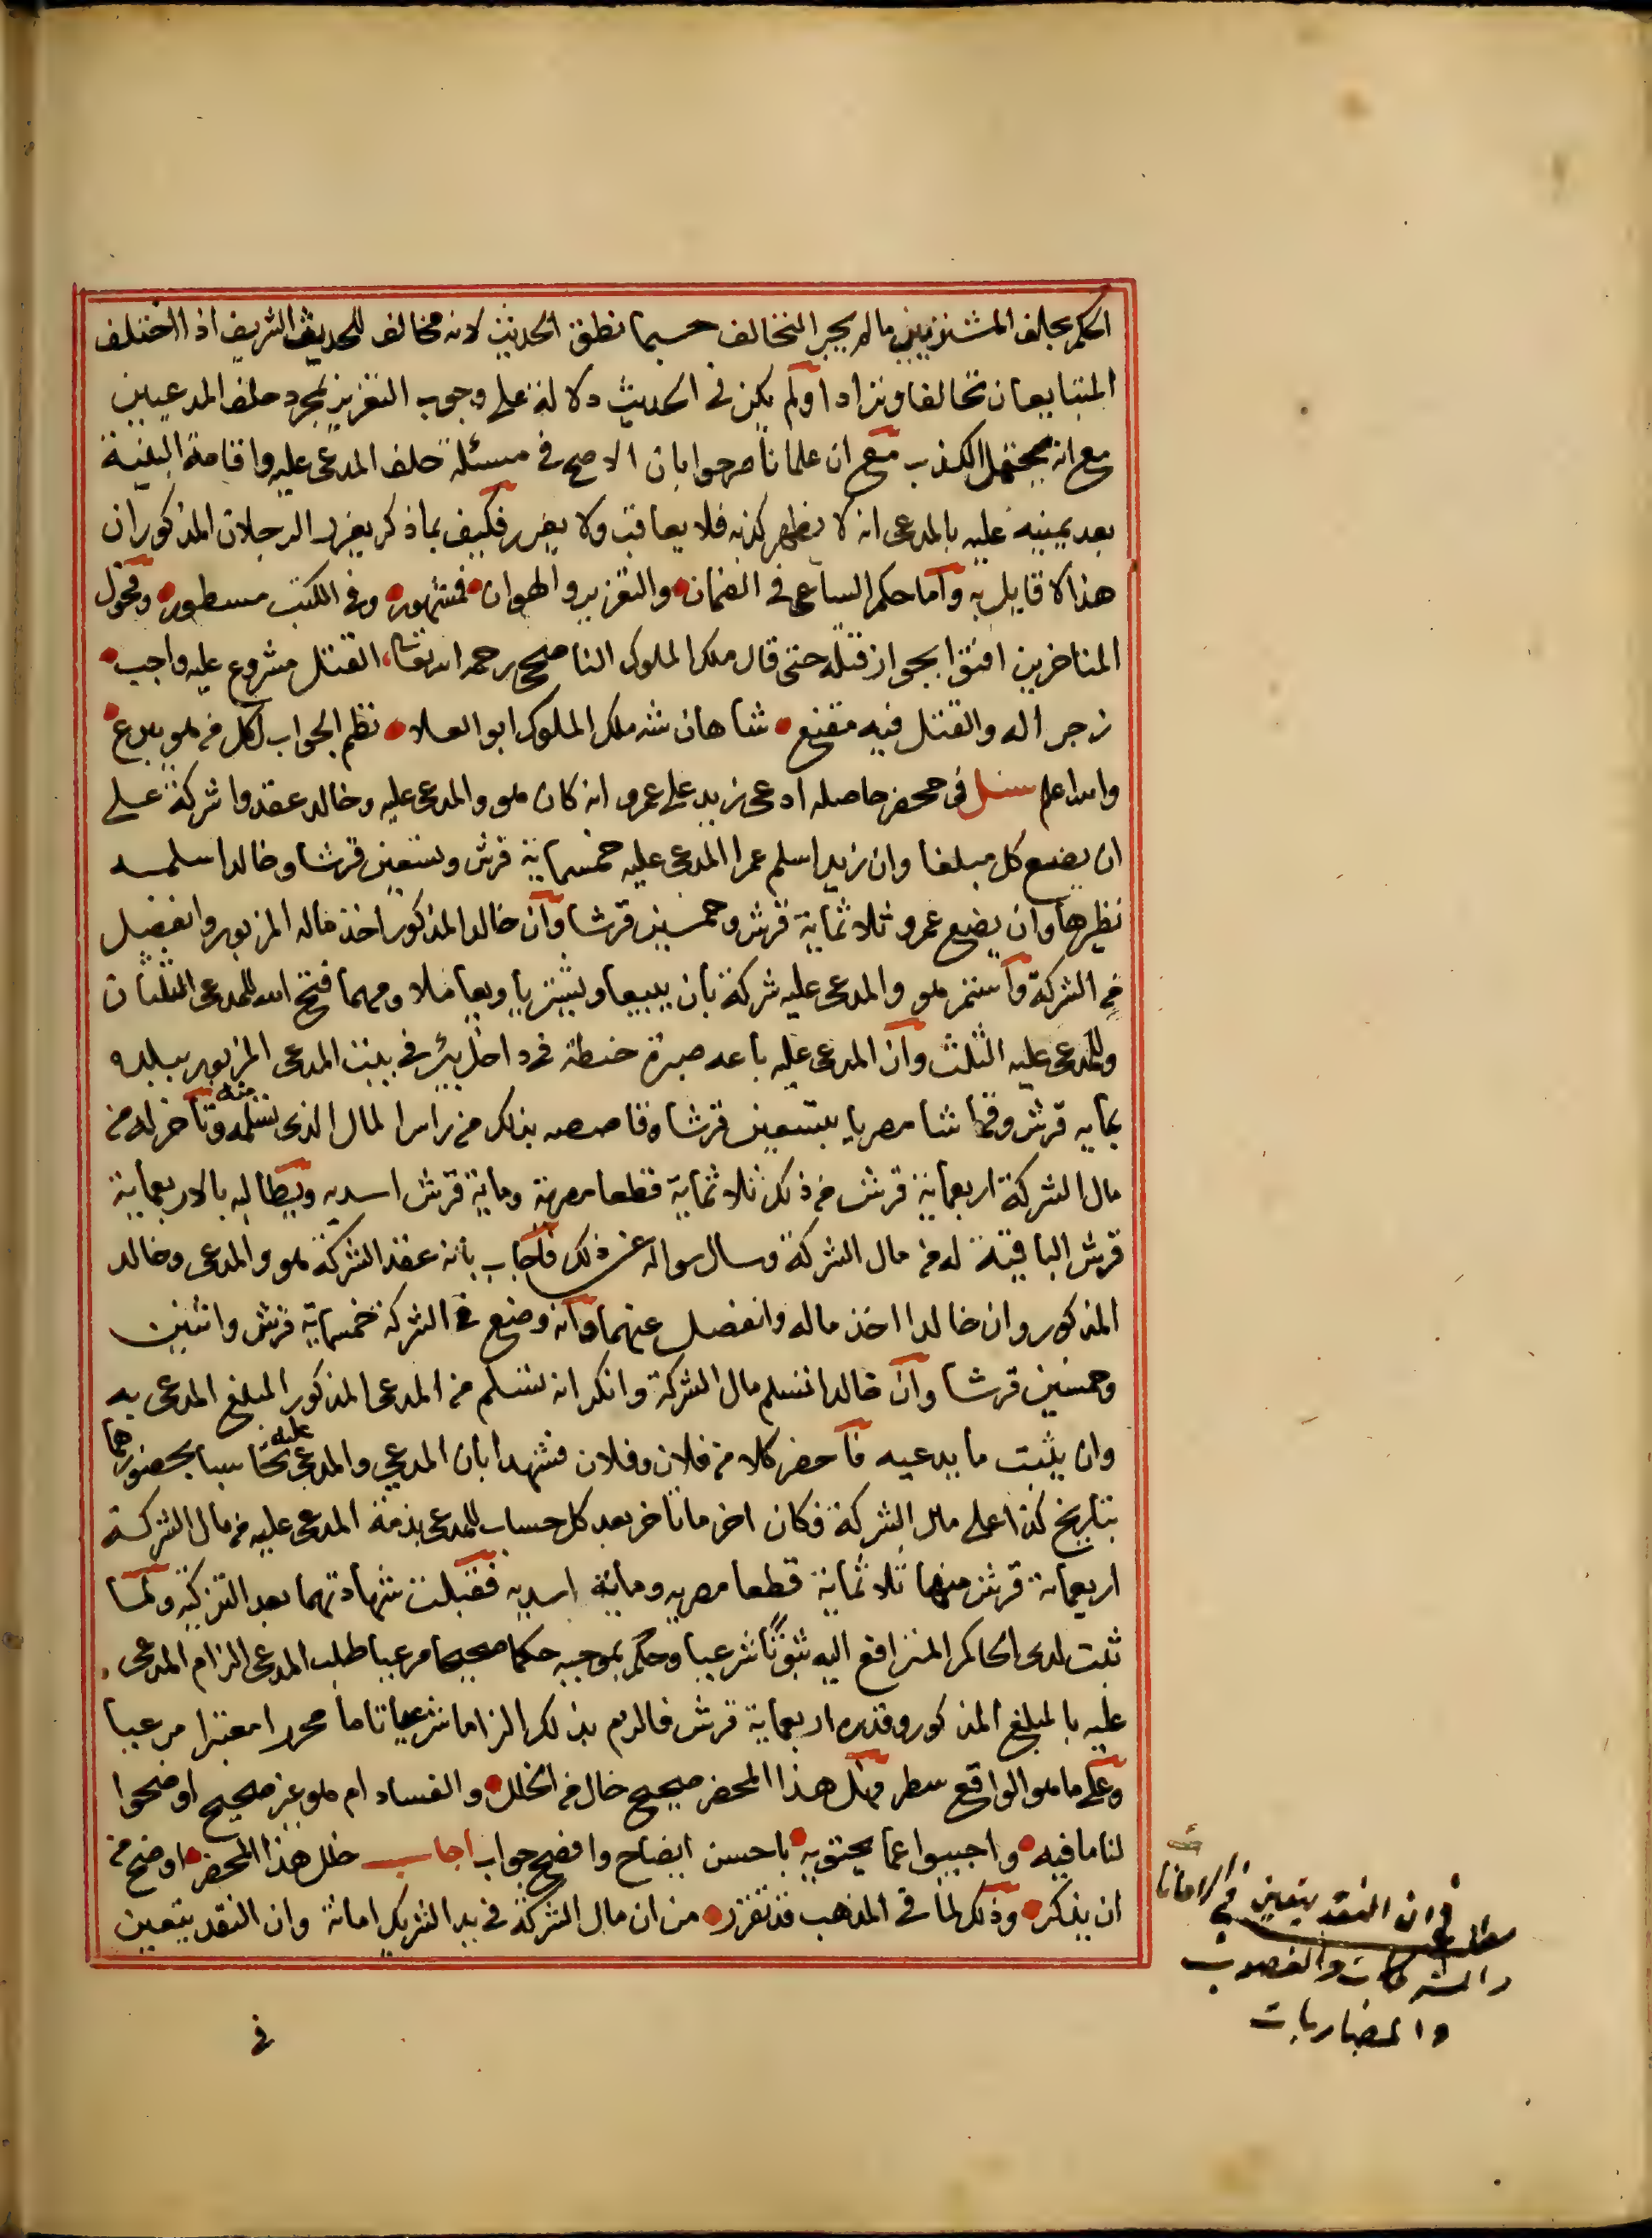 الحكم بحلف المشتريين مالم يجر التخالف حسبما نطق الحديث لانه مخالف للحديث الشريف اذا اختلف
المتبايعان تخالفا وترادا ولم يكن في الحديث دلالة على وجوب التعزير بمجرد حلف المدعيين
مع انه يحتمل الكذب مع ان علمانا صرحوا بان الاصح في مسئلة حلف المدعى عليه واقامة البينة
بعد يمينه عليه بالمدعى انه لا يظهر كذبه فلا يعاقب ولا يعزر فكيف بما ذكر يعزر الرجلان المذكوران
هذا لا قايل به واما حكم الساعي في الضمان والتعزير والهوان فمشهور وفي الكتب مسطور وفحول
المتاخرين افتوا بجواز قتله حتى قال ملك الملوك الناصحي رحمه الله تعالى القتل مشروع عليه واجب
زجرا له والقتل فيه مقنع شاهان شه ملك الملوك ابو العلا نظم الجواب لكل من هو يبدع
والله اعلم سئل في محضر حاصله ادعى زيد على عمرو انه كان هو والمدعى عليه وخالد عقدوا شركة على
ان يضع كل مبلغا وان زيدا سلم عمرا المدعى عليه خمسماية قرش وتسعين قرشا وخالدا سلمه
نظيرها وان يضع عمرو ثلاثماية قرش وخمسين قرشا وان خالد المذكور اخذ ماله المزبور وانفصل
من الشركة واستمر هو والمدعى عليه شركة بان يبيعا ويشتريا ويعاملا ومهما فتح الله للمدعى الثلثان
وللمدعى عليه الثلث وان المدعى عليه باعه صبرة حنطة في داخل بئر في بيت المدعى المزبور ببلده
بمايه قرش وقماشا مصريا بتسعين قرشا وقاصصه بذلك من راس المال الذى تسلمه منه وتاخر له من
مال الشركة اربعماية قرش من ذلك ثلاثماية قطعا مصرية وماية قرش اسديه ويطالبه بالاربعماية
قرش الباقية له من مال الشركة وسال سواله عن ذلك فاجاب بانه عقد الشركة هو والمدعى وخالد
المذكور وان خالدا اخذ ماله وانفصل عنهما وانه وضع في الشركة خمسماية قرش واثنين
وخمسين قرشا وان خالدا تسلم مال الشركة وانكر انه تسلم من المدعى المذكور المبلغ المدعى به
وان يثبت ما يدعيه فاحضر كلا من فلان وفلان فشهدا بان المدعي والمدعى عليه تحاسبا بحضورهما
بتاريخ كذا على مال الشركة فكان اخر ما تاخر بعد كل حساب للمدعى بذمة المدعى عليه من مال الشركة
اربعماية قرش منها ثلاثماية قطعا مصريه وماية اسديه فقبلت شهادتهما بعد التزكية ولما
ثبت لدى الحاكم المترافع اليه ثبوتا شرعيا وحكم بموجبه حكما صحيحا مرعيا طلب المدعى الزام المدعى
عليه بالمبلغ المذكور وقدره اربعماية قرش فالزم بذلك الزاما شرعيا تاما محررا معتبرا مرعيا
وعلى ما هو الواقع سطر فهل هذا المحضر صحيح خال من الخلل والفساد ام هو غير صحيح اوضحوا
لنا ما فيه واجيبوا عما يحتويه باحسن ايضاح وافصح جواب اجاب خلل هذا المحضر اوضح من
ان يذكر وذلك لما في المذهب قد تقرر من ان مال الشركة في يد الشريك امانة وان النقد يتعين
في
مطلب في ان النقد يتعين في الامانات
والشركات والغصوب
والمضاربات